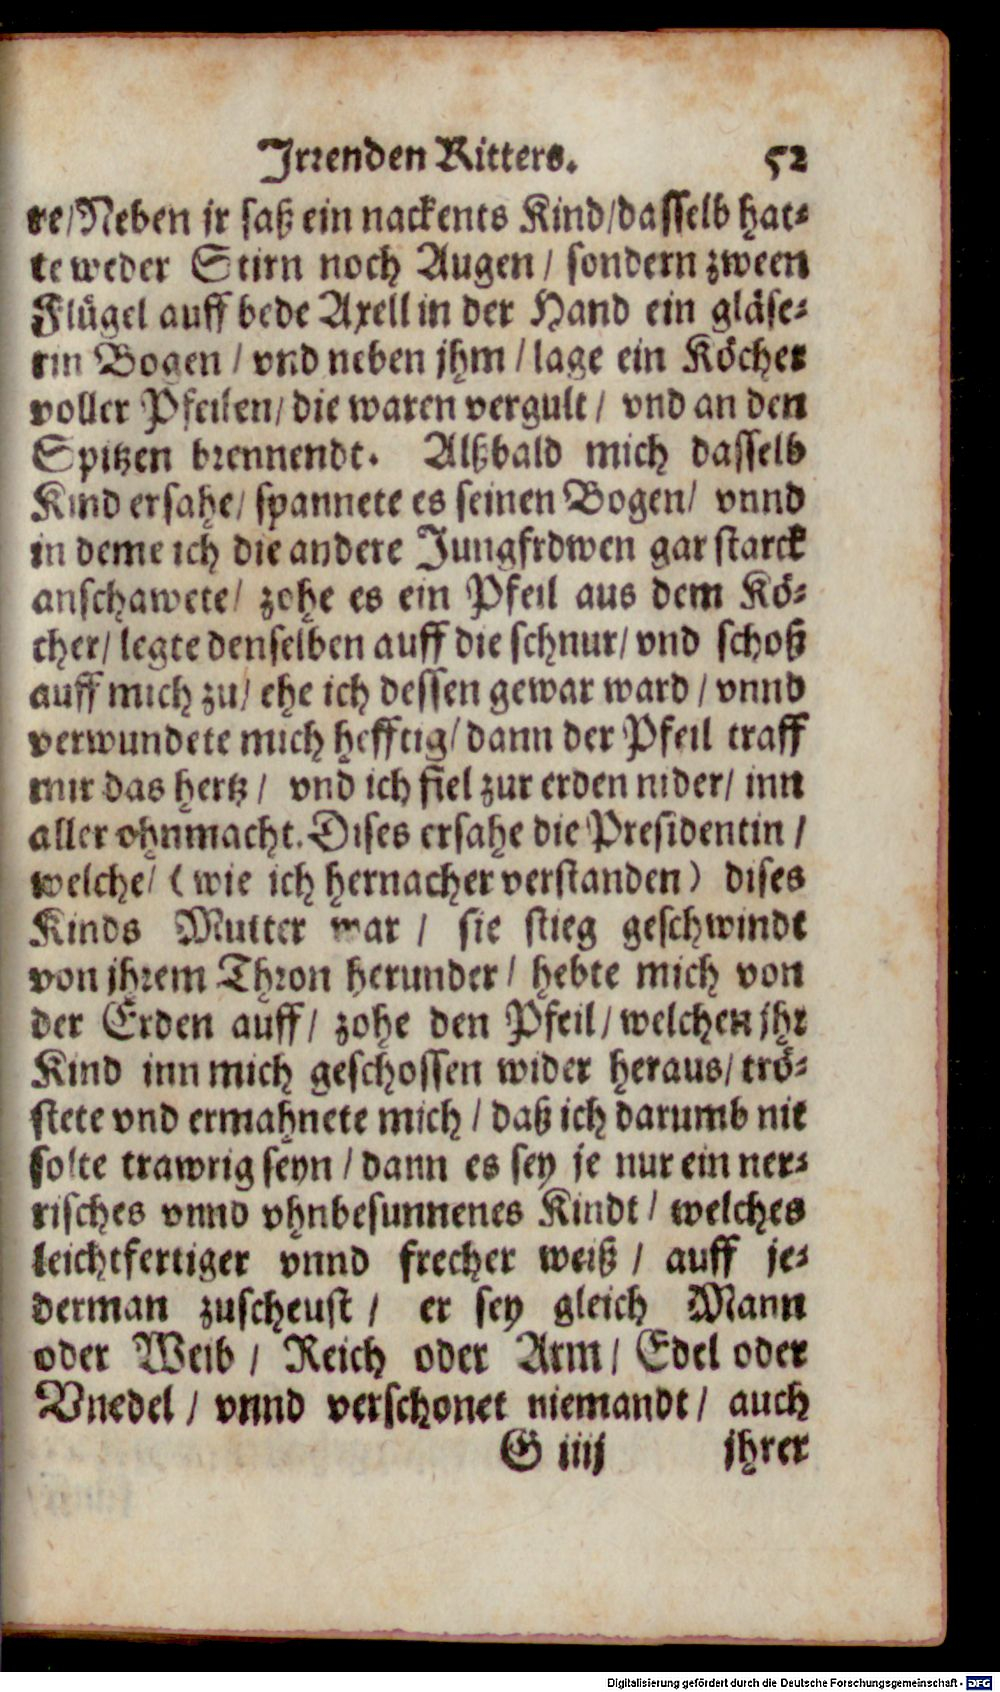 Irrenden Ritters. 52
re/Neben jr saß ein nackents Kind/dasselb hat-
te weder Stirn noch Augen / sondern zween
Flügel auff bede Axell in der Hand ein gläse-
rin Bogen / vnd neben jhm / lage ein Köcher
voller Pfeilen / die waren vergult / vnd an den
Spitzen brennendt. Alßbald mich dasselb
Kind ersahe / spannete es seinen Bogen / vnnd
in deme ich die andere Jungfrdwen gar starck
anschawete / zohe es ein Pfeil aus dem Kö-
cher / legte denselben auff die schnur / vnd schoß
auff mich zu / ehe ich dessen gewar ward / vnnd
verwundete mich hefftig / dann der Pfeil traff
mir das hertz / vnd ich fiel zur erden nider / inn
aller ohnmacht. Dises ersahe die Presidentin /
welche / (wie ich hernacher verstanden) dises
Kinds Mutter war / sie stieg geschwindt
von jhrem Thron herunder / hebte mich von
der Erden auff / zohe den Pfeil / welchen jhr
Kind inn mich geschossen wider heraus / trö-
stete vnd ermahnete mich / daß ich darumb nit
solte trawrig seyn / dann es sey je nur ein ner-
risches vnnd vhnbesunnenes Kindt / welches
leichtfertiger vnnd frecher weiß / auff je-
derman zuscheust / er sey gleich Mann
oder Weib / Reich oder Arm / Edel oder
Vnedel / vnnd verschonet niemandt / auch
G iiij jhrer
Digitalisierung gefördert durch die Deutsche Forschungsgemeinschaft - DFG